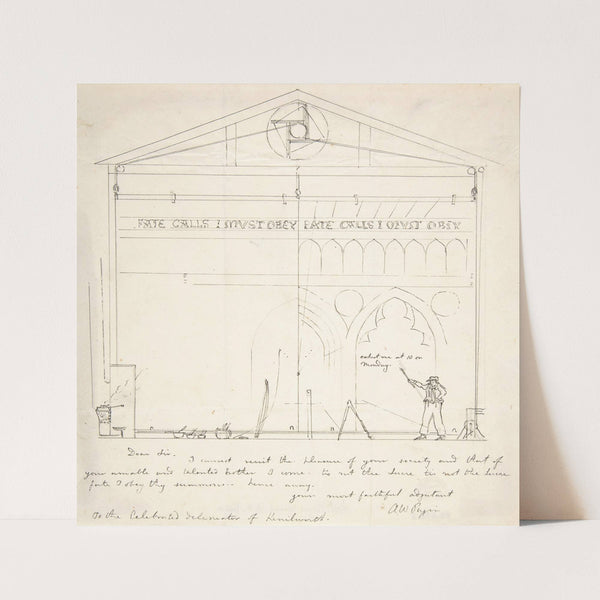 FATE CALLS I MUST OBEY FATE CALLS I MUST OBEY
expect me at 10 on
Monday.
Dear Sir. I cannot resist the pleasure of your society and that of
your amiable and talented brother I come. tis not the tis not the
fate I obey thy summons.. hence away.
your most faithful adjutant
A W Pugin
To the Celebrated delineator of Kenilworth.